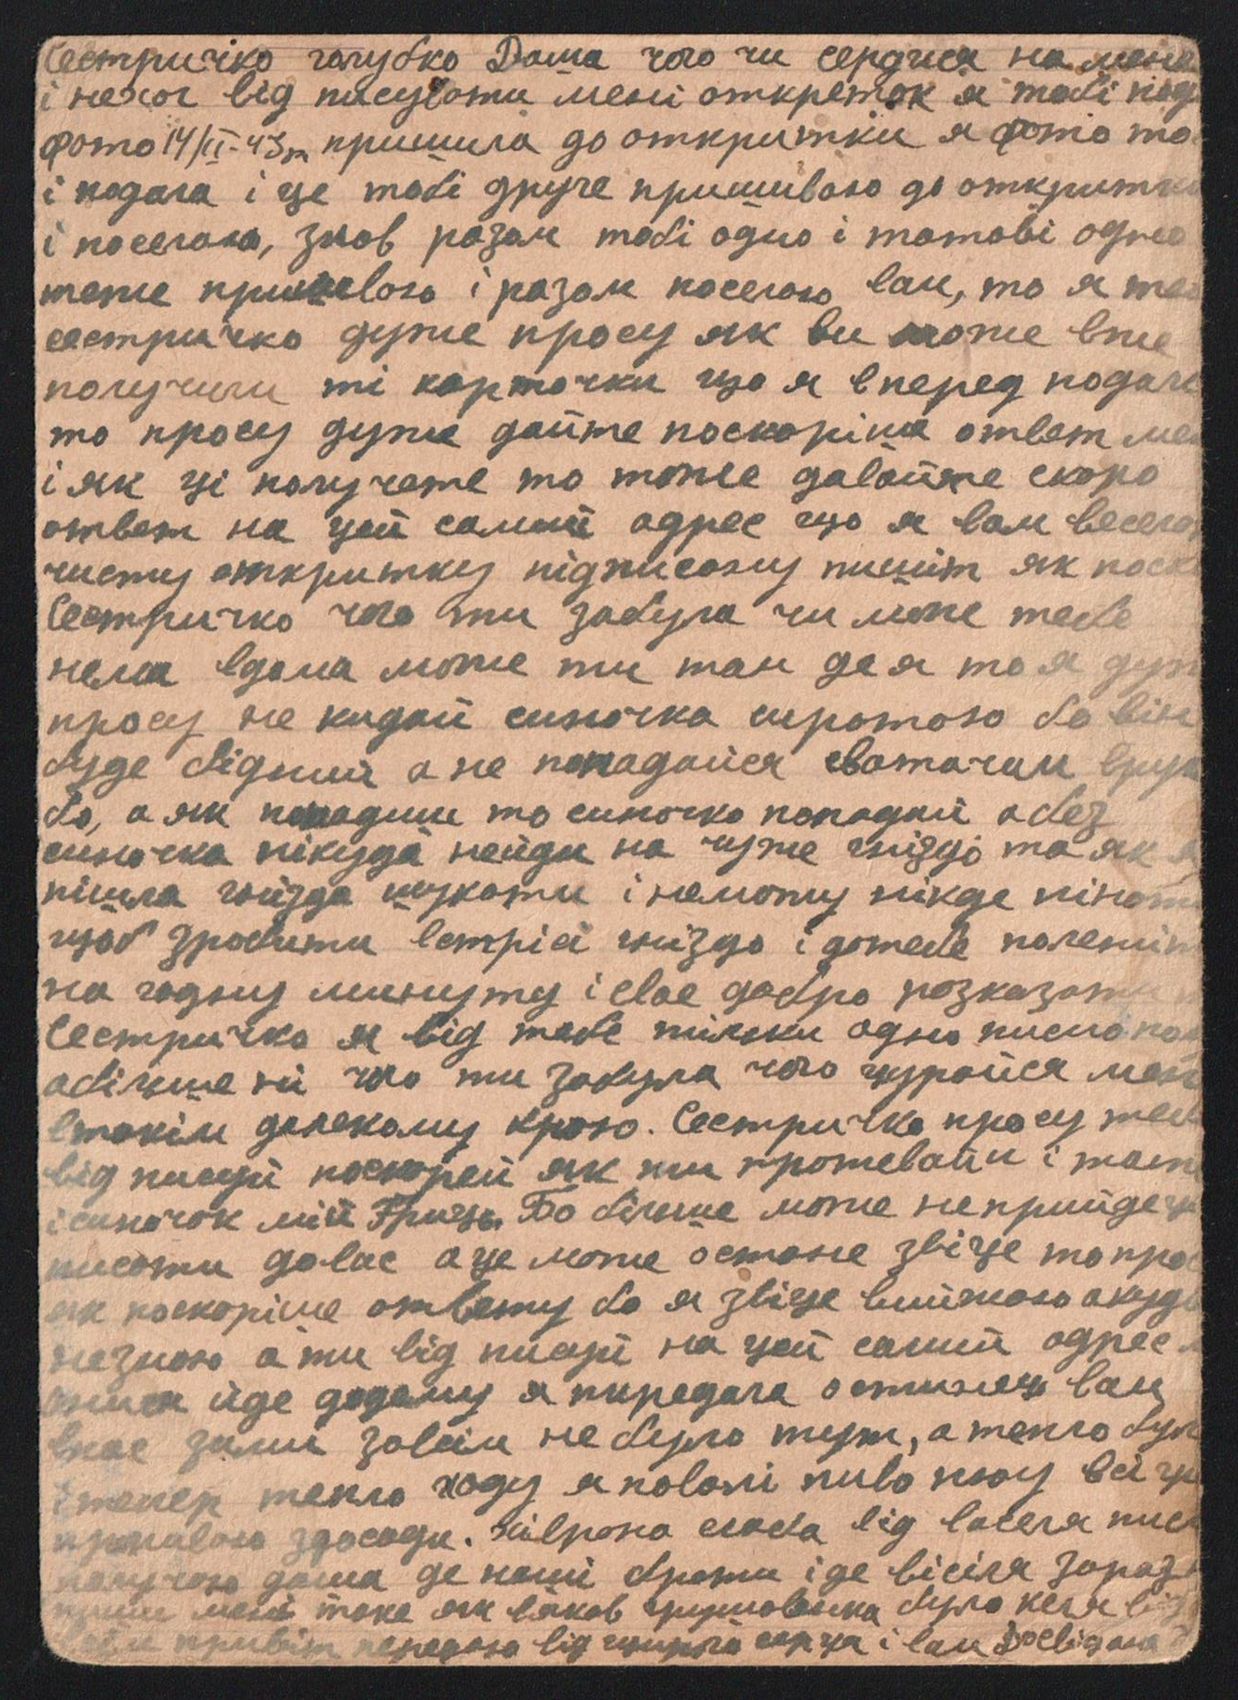 Сестричко голубко Даша чого ти сердися на мене
і нехоч від писувати мені открыток я тобі под
фото 14/II-43 пришила до откритки я фото то
і подала і це тобі друге пришиваю до откритки
і поселаю, знов разом тобі одно і татові одно
теже пришеваю і разом поселаю вам, то я те
сестричко дуже просу як ви може вже
получили ті карточки що я вперед подала
то просу дуже дайте поскоріше ответ ме
і як ці получете то тоже давайте скоро
ответ на цей самий адрес що я вам весела
чисту откритку підписану пишіт як поск
Сестричко чого ти забула чи може тебе
нема вдома може ти там де я то я дуж
просу не кидай синочка сиротою бо він
буде бідний а не попадайся сватачам вруки
бо, а як попадиш то синочка попадай а без
синочка нікуда нейди на чуже гніздо та як я
пішла гнізда шукати і неможу нікде пінати
щоб зробити встрісі гніздо і дотебе полетіт
на годну минуту і своє добро розказати
Сестричко я від тебе тілки одно писмо пол
абілше ні чого ти забула чого цурайся мен
втакім далекому краю. Сестричко просу теб
від писуй поскорей як ти прожеваїш і тато
і синочок мій Гриць. Бо білше може неприйдеця
писати довас а це може остане звіце то про
як поскоріше ответу бо я звіце виїжаю а куда
незнаю а ти від писуй на цей самий адрес
йде додому я передала остинець вам
внас зими зовсім не було тут, а тепло було
і тепер тепло ходу я поволі пиво пюу всі гр
пропиваю здосади. Хіврона слаба від васеля пис
получаю даша де наші брати і де вісіля зараз
пиши мені таке як вяков грушовенка було кега від
всім привіт передаю від щирого серця і вам Досвідана